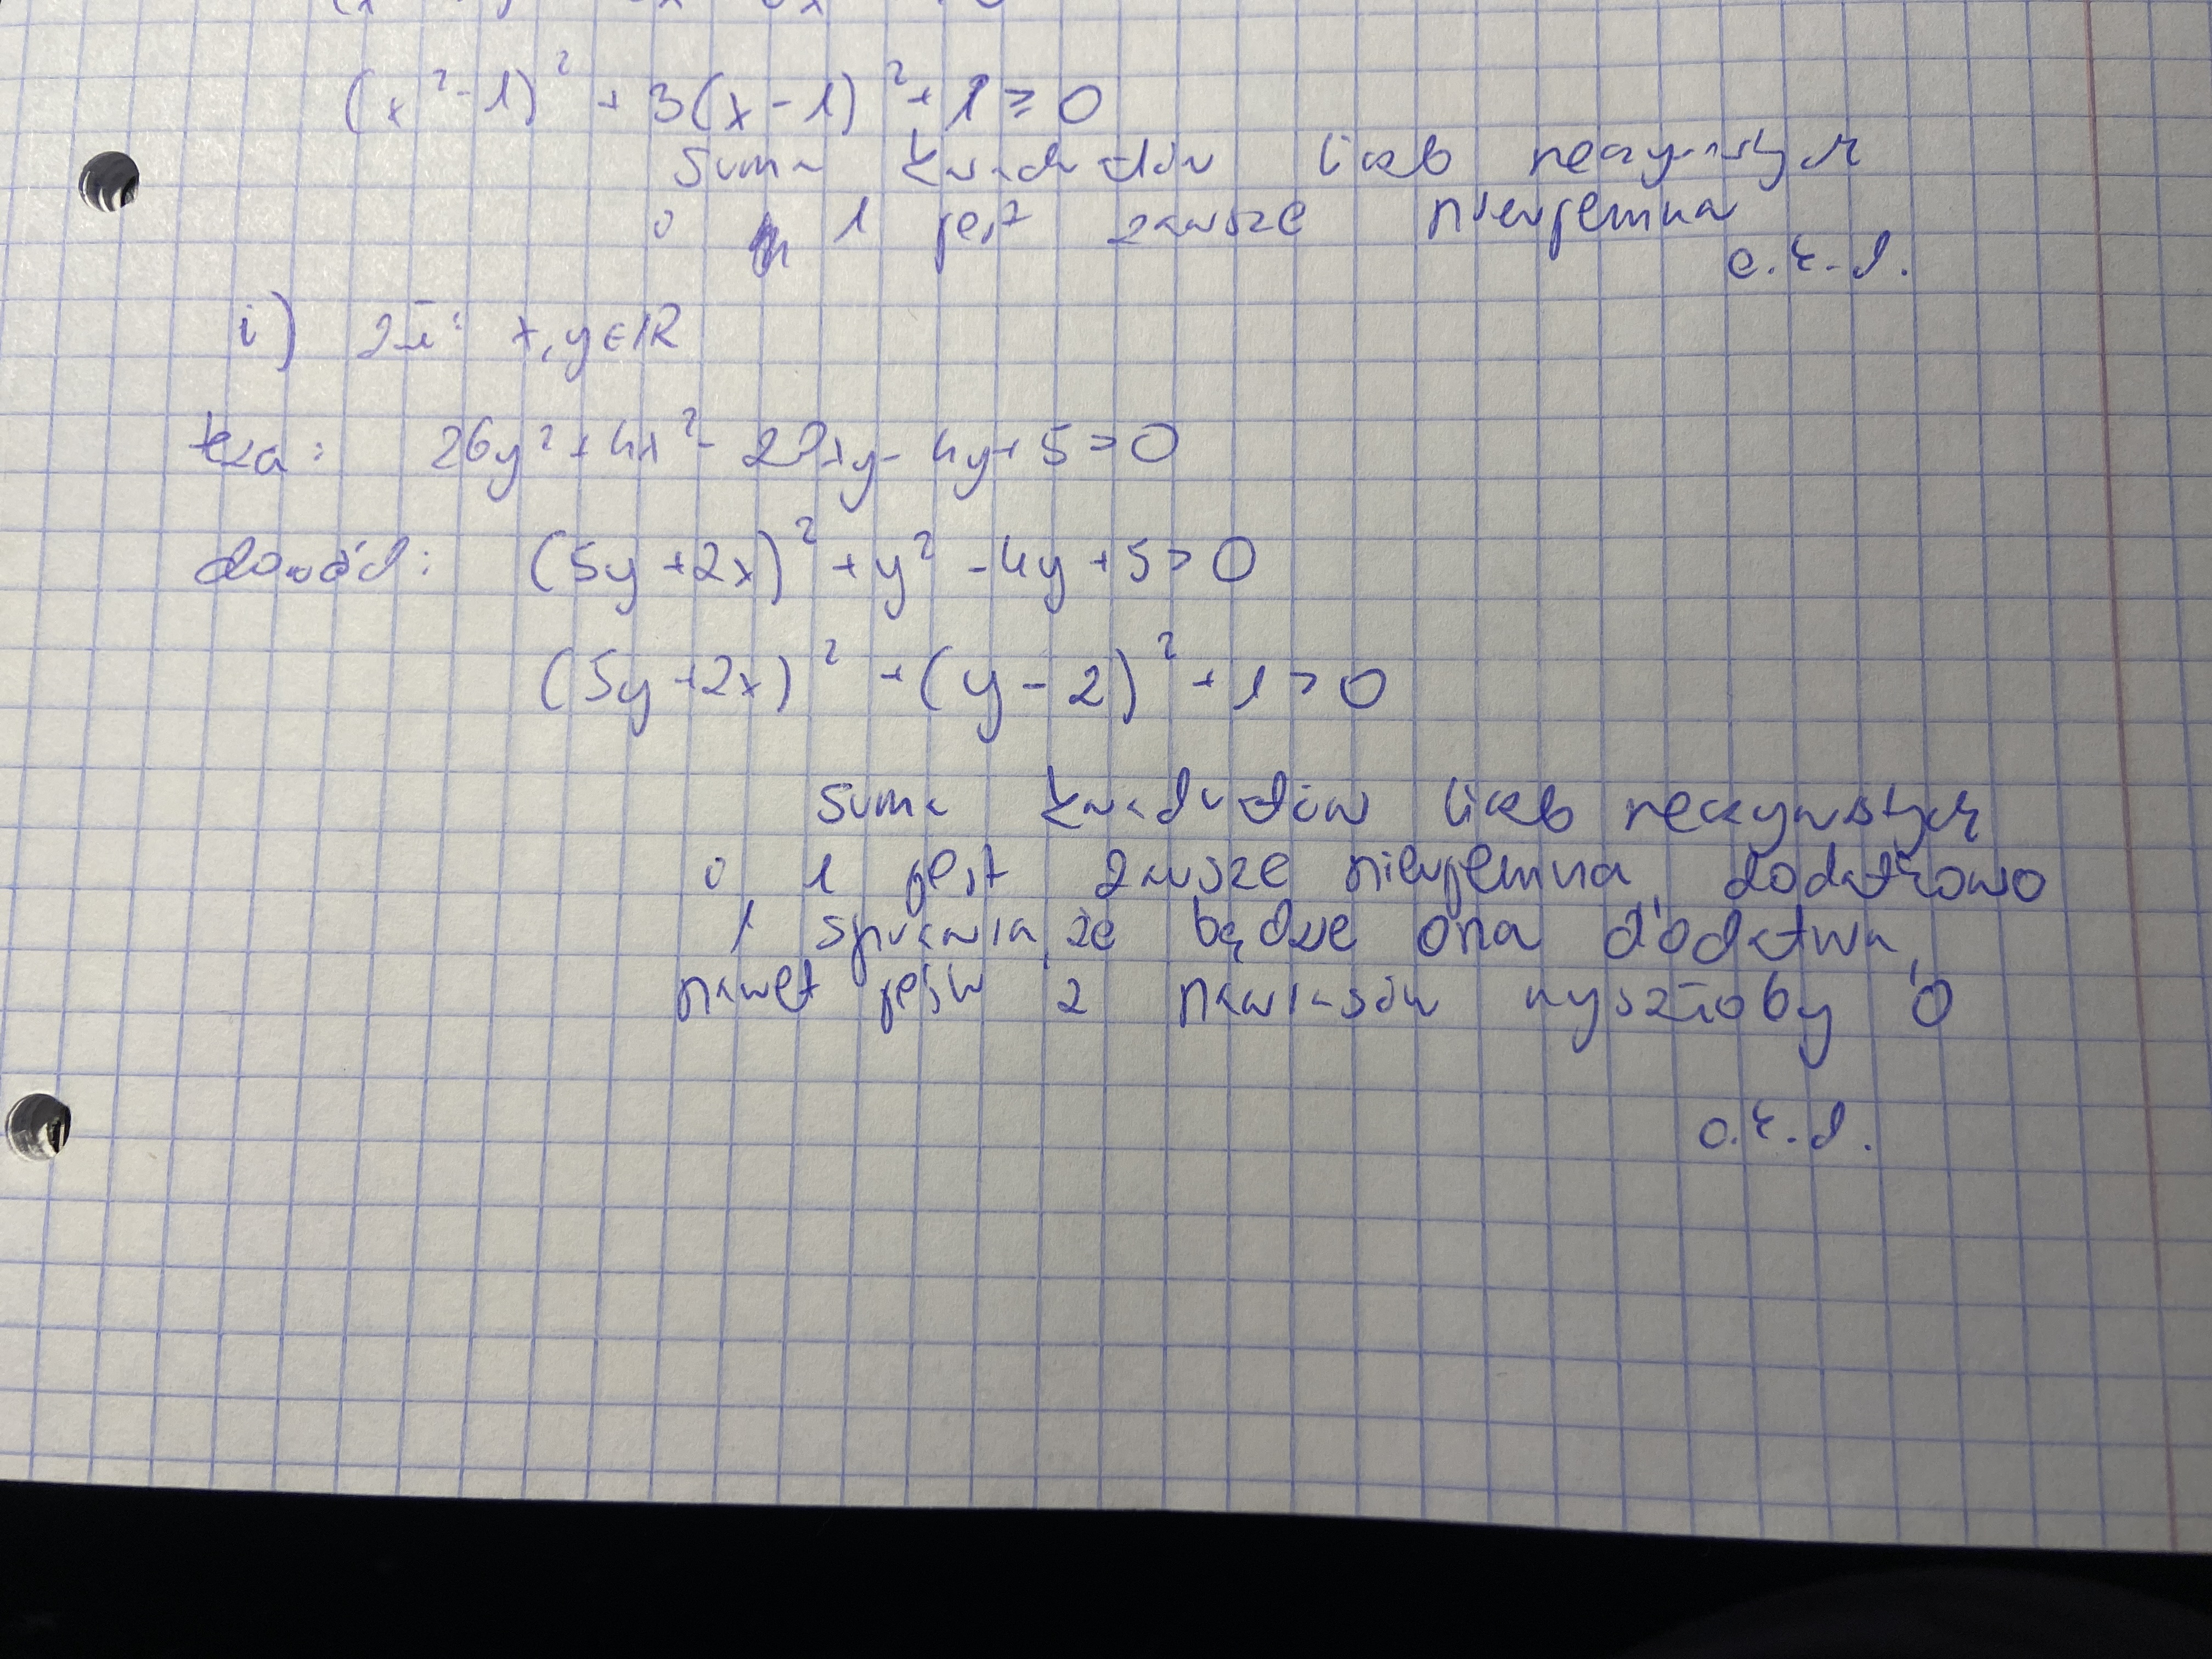 (x²-1)² + 3(x-1)² + 1 ≥ 0
Suma kwadratów liczb rzeczywistych
i 1 jest zawsze nieujemna
c.k.d.
i) zał: x, y ∈ IR
teza: 26y² + 4x² - 20xy - 4y + 5 > 0
dowód: (5y + 2x)² + y² - 4y + 5 > 0
(5y + 2x)² + (y - 2)² + 1 > 0
Suma kwadratów liczb rzeczywistych
i 1 jest zawsze nieujemna, dodatkowo
1 sprawia, że będzie ona dodatnia,
nawet jeśli z nawiasów wyszłoby 0
c.k.d.